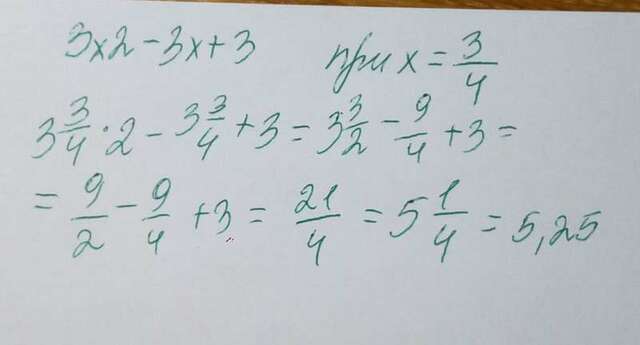 3x2 - 3x + 3 при x = 3/4
3 3/4 · 2 - 3 3/4 + 3 = 3 3/2 - 9/4 + 3 =
= 9/2 - 9/4 + 3 = 21/4 = 5 1/4 = 5,25